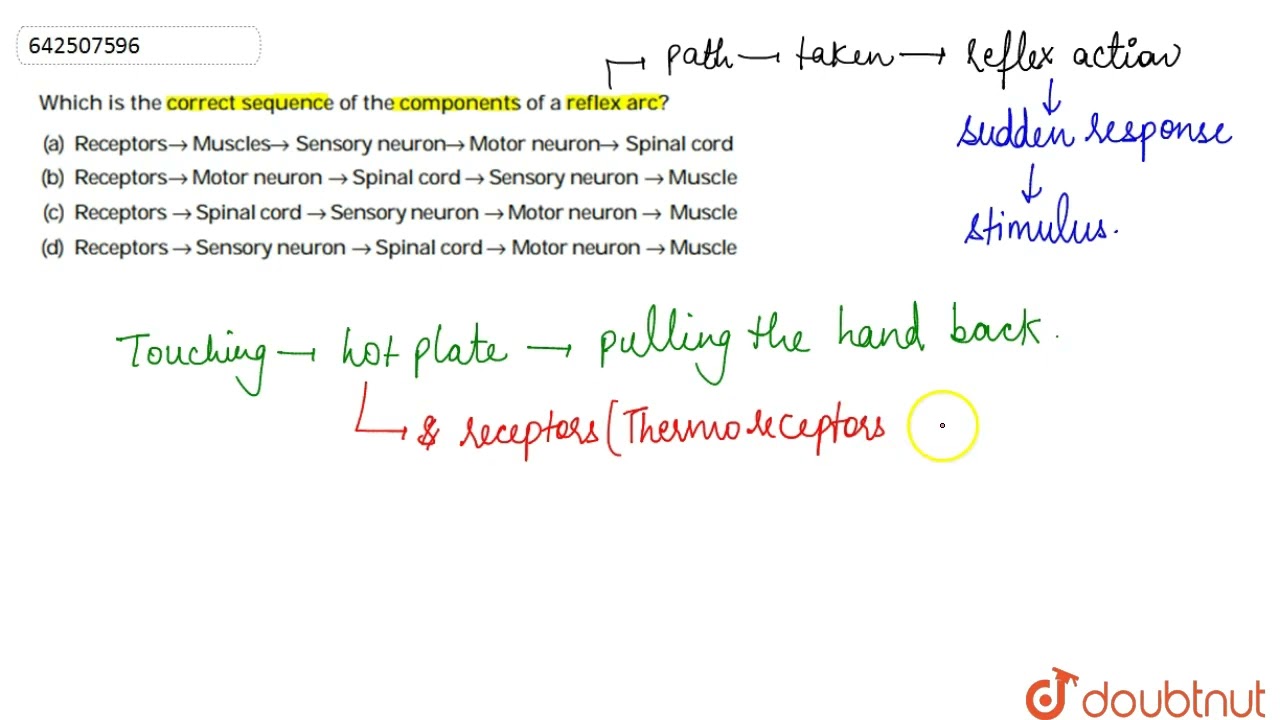 642507596
path — taken → reflex action
Which is the correct sequence of the components of a reflex arc?
sudden response
(a) Receptors→ Muscles→ Sensory neuron→ Motor neuron→ Spinal cord
(b) Receptors→ Motor neuron → Spinal cord → Sensory neuron → Muscle
(c) Receptors → Spinal cord → Sensory neuron → Motor neuron → Muscle
stimulus.
(d) Receptors → Sensory neuron → Spinal cord → Motor neuron → Muscle
Touching → hot plate → pulling the hand back.
receptors (Thermoreceptors
doubtnut